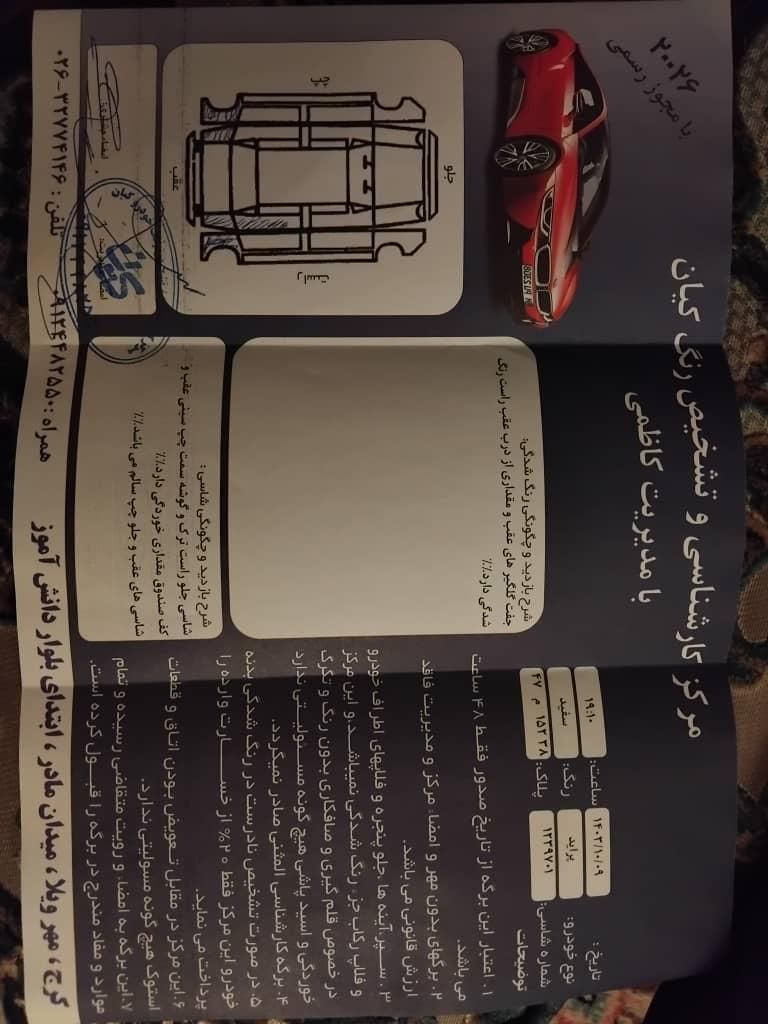 ۲۰۲۶
با مجوز رسمی
مرکز کارشناسی و تشخیص رنگ کیان
با مدیریت کاظمی
تاریخ :
۱۴۰۳/۱۰/۰۹
ساعت:
۱۹:۱۰
نوع خودرو:
پراید
رنگ:
سفید
شماره شاسی:
۱۲۳۹۷۰۱
پلاک:
۴۷ م ۱۵۲ ۳۸
جلو
عقب
راست
چپ
شرح بازدید و چگونگی رنگ شدگی:
جفت گلگیر های عقب و مقداری از درب عقب راست رنگ
شدگی دارد.٪٪
شرح بازدید و چگونگی شاسی :
شاسی جلو راست ترک و گوشه سمت چپ سینی عقب و
کف صندوق مقداری خوردگی دارد.٪٪
شاسی های عقب و جلو چپ سالم می باشد.٪٪
توضیحات
۱. اعتبار این برگه از تاریخ صدور فقط ۴۸ ساعت
می باشد.
۲. برگهای بدون مهر و امضاء مرکز و مدیریت فاقد
ارزش قانونی می باشد.
۳. سپر، آینه ها، جلو پنجره و قلابهای اطراف خودرو
و قلاب رکاب جزء رنگ شدگی نمیباشد و این مرکز
در خصوص قلم گیری و صافکاری بدون رنگ و تگرگ
خوردگی و اسید پاشی هیچ گونه مسئولیتی ندارد
۴. برگه کارشناسی المثنی صادر نمیگردد.
۵. در صورت تشخیص نادرست در رنگ شدگی بدنه
خودرو این مرکز فقط ۲۰٪ از خسارت وارده را
پرداخت می نماید.
۶. این مرکز در مقابل تعویض بودن اتاق و قطعات
استوک هیچ گونه مسولیتی ندارد.
۷. این برگه به امضاء و رویت متقاضی رسیده و تمام
موارد و مفاد مندرج در برگه را قبول کرده است.
کیان
تلفن : ۰۲۶-۳۲۷۷۴۱۴۶
همراه : ۰۹۱۲۴۴۸۲۵۵۰
کرج ، مهر ویلا ، میدان مادر ، ابتدای بلوار دانش آموز